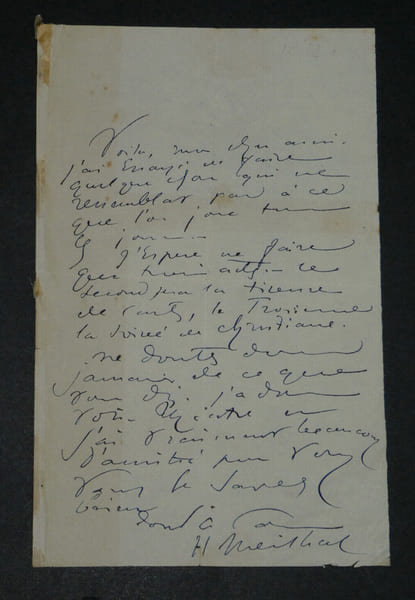 Voilà, mon cher ami.
j'ai Essayé de faire
quelque chose qui ne
ressemblat pas à ce
que l'on joue tous
les jours.
J'Espère ne faire
que trois actes. le
second sera la tireuse
de cartes, le Troisième
la soirée de christiane.
ne doutez donc
jamais de ce que
vous
j'ai vraiment beaucoup
d'amitié pour vous
Vous le savez
bien
tout à vous
H Meilhac